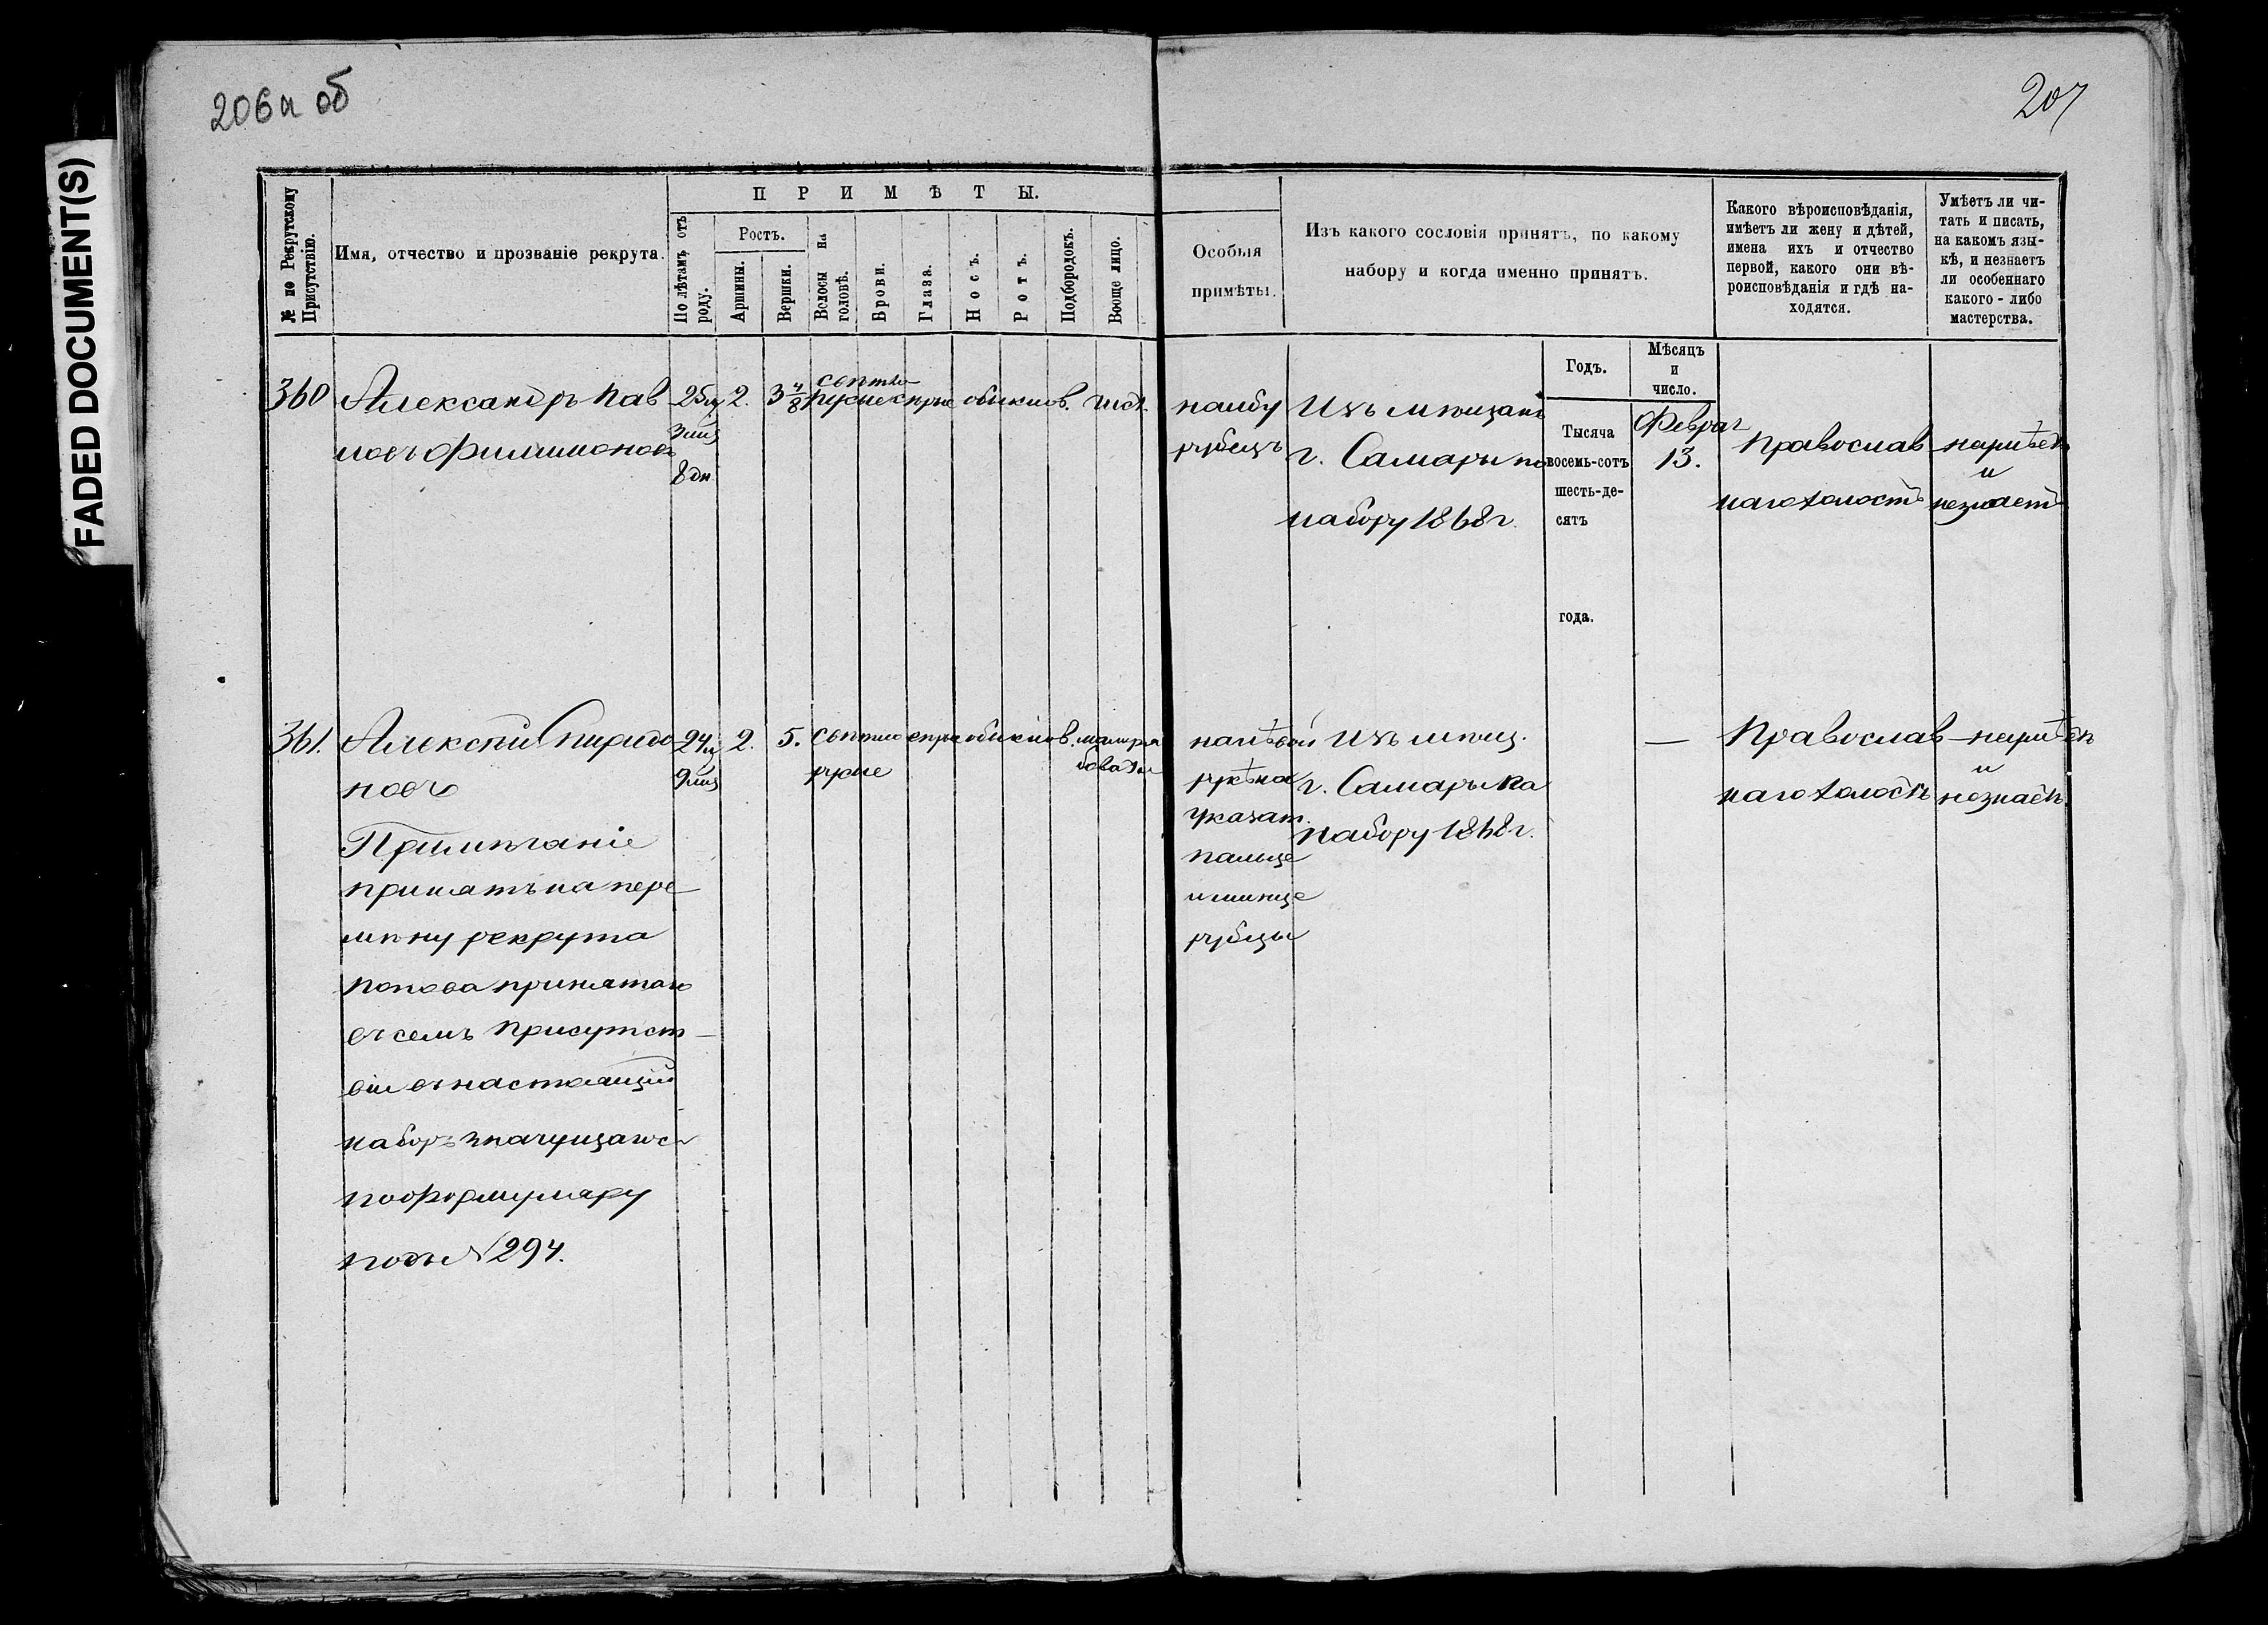 206а об
207
FADED DOCUMENT(S)
№ по Рекрутскому Присутствію.
Имя, отчество и прозваніе рекрута.
ПРИМѢТЫ.
По лѣтамъ отъ роду.
Ростъ.
Аршины.
Вершки.
Волосы на головѣ.
Брови.
Глаза.
Носъ.
Ротъ.
Подбородокъ.
Вооще лицо.
Особыя
примѣты.
Изъ какого сословія принятъ, по какому
набору и когда именно принятъ.
Какого вѣроисповѣданія,
имѣетъ ли жену и дѣтей,
имена ихъ и отчество
первой, какого они вѣ-
роисповѣданія и гдѣ на-
ходятся.
Умѣетъ ли чи-
тать и писать,
на какомъ язы-
кѣ, и незнаетъ
ли особеннаго
какого-либо
мастерства.
Годъ.
Мѣсяцъ
и
число.
Тысяча
восемь-сотъ
шесть-де-
сятъ
года.
360
Александръ Пав
ловъ Филимоновъ
25 л
3 мц
8 дн
2.
3 4/8
свѣтло
русые
сѣрые
обыкнов.
чист.
на лбу
рубецъ
Изъ мѣщанъ
г. Самары по
набору 1868 г.
Феврал
13.
Православ
наго холостъ
неумѣетъ
и
незнаетъ
361.
Алексѣй Спиридо
новъ
Примѣчаніе
принятъ на пере
мѣну рекрута
Попова принятаго
въ семъ Присутст
віи въ настоящій
наборъ значущагося
по формуляру
подъ № 294.
24 л
9 мц
2.
5.
свѣтло
русые
сѣрые
обыкнов.
на лѣвой
рукѣ на
указат.
пальце
и мизинце
рубцы
Изъ мѣщ.
г. Самары по
набору 1868 г.
—
Православ
наго холостъ
неумѣетъ
и
незнаетъ